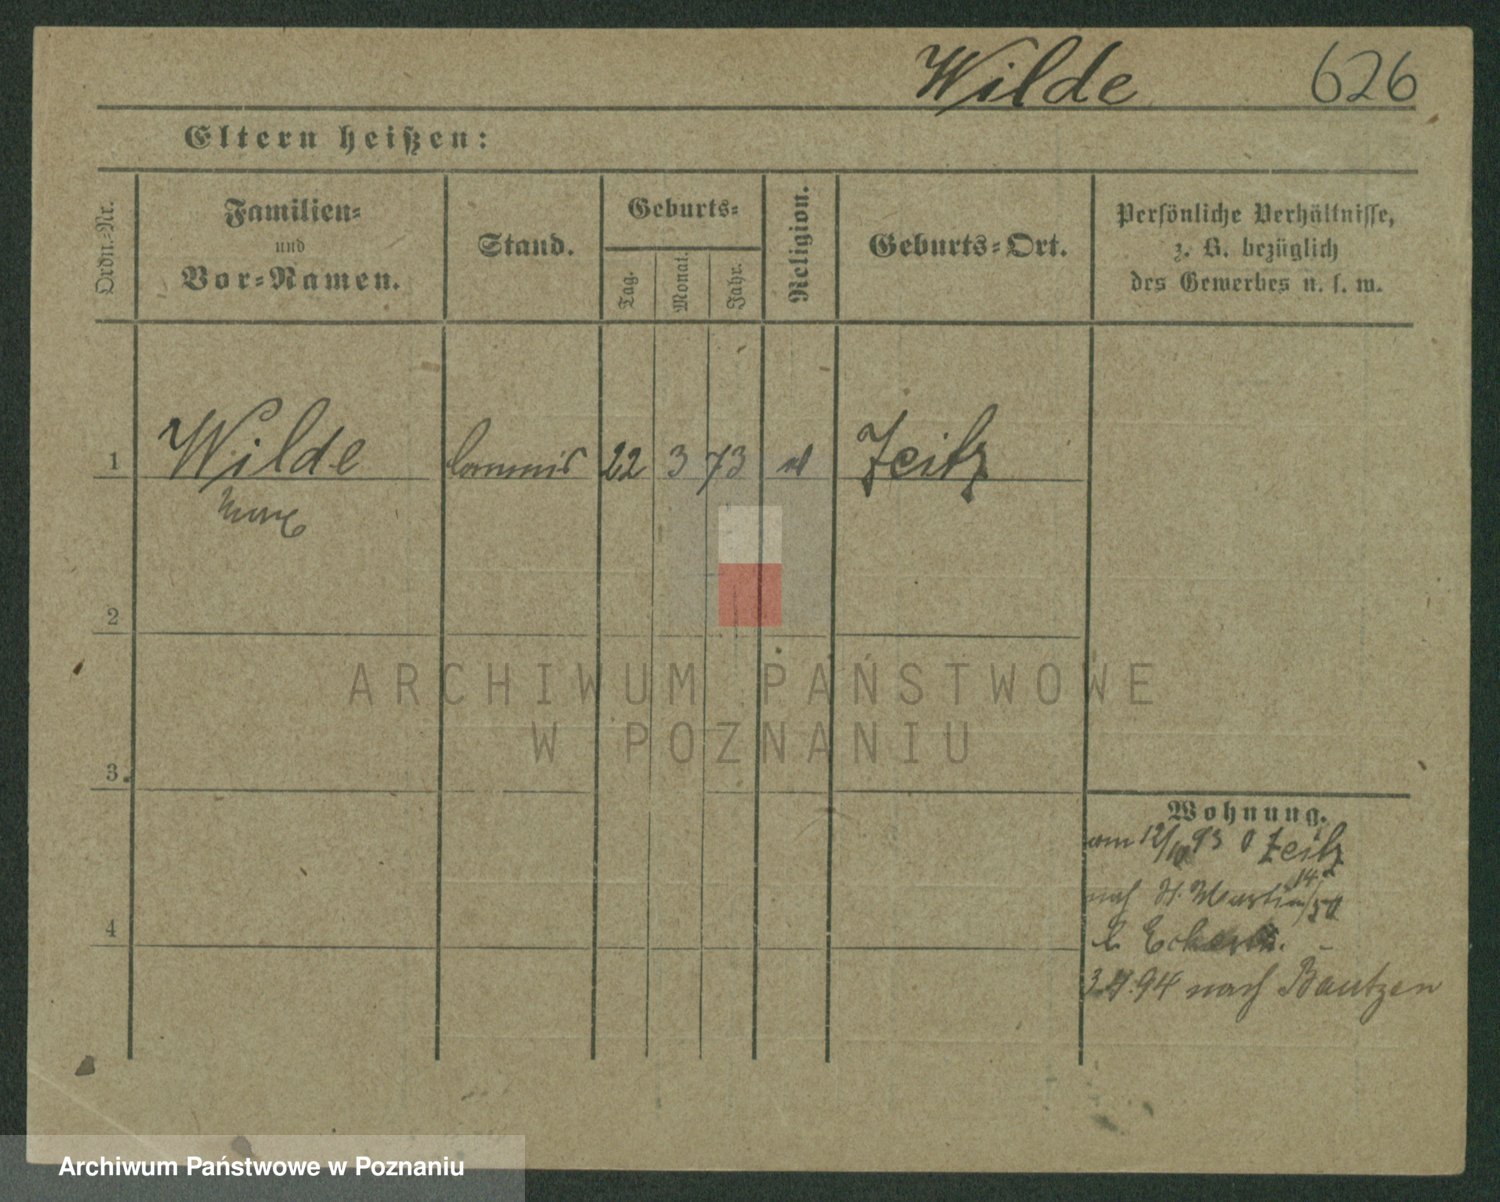 Wilde 626
Eltern heißen:
Ordn.-Nr.
Familien-
und
Vor-Namen.
Stand.
Geburts-
Tag.
Monat.
Jahr.
Religion.
Geburts-Ort.
Persönliche Verhältnisse,
z. B. bezüglich
des Gewerbes u. s. w.
1 Wilde Commis 22 3 73 Zeitz
2
3
4
Wohnung.
93 Zeitz
nach St. Martin
94 nach Bautzen
ARCHIWUM PAŃSTWOWE
W POZNANIU
Archiwum Państwowe w Poznaniu